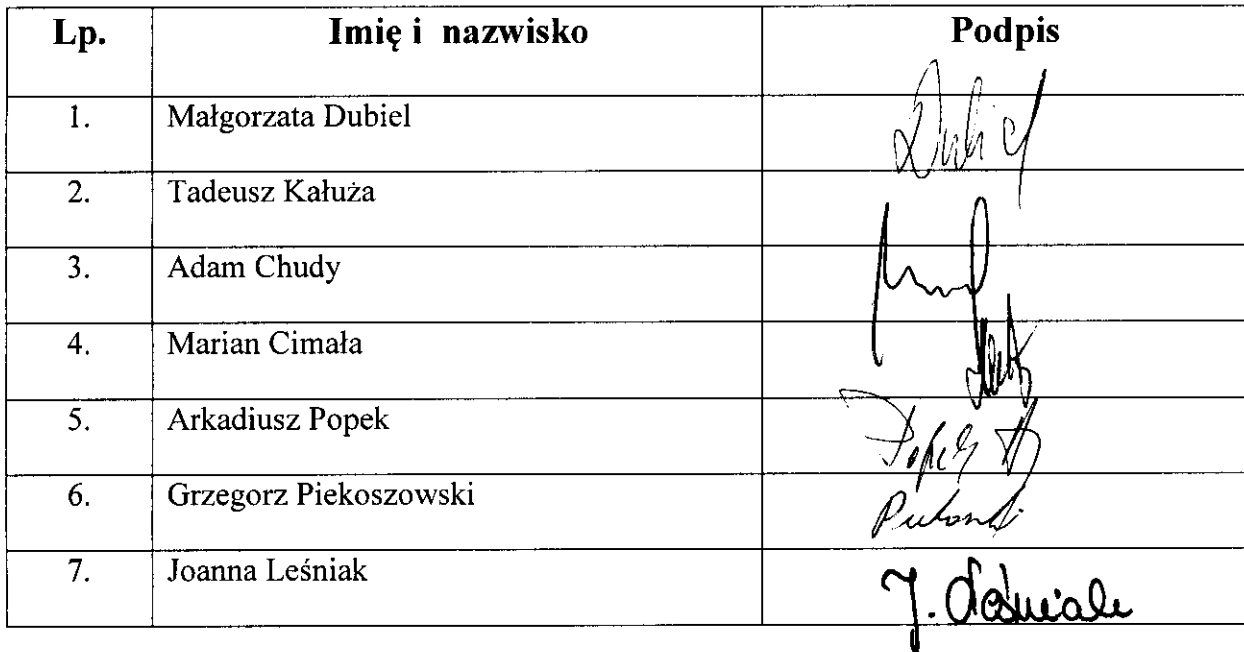 Lp. Imię i nazwisko Podpis
1. Małgorzata Dubiel Dubiel
2. Tadeusz Kałuża
3. Adam Chudy
4. Marian Cimała
5. Arkadiusz Popek Popek A
6. Grzegorz Piekoszowski
7. Joanna Leśniak J. Leśniak